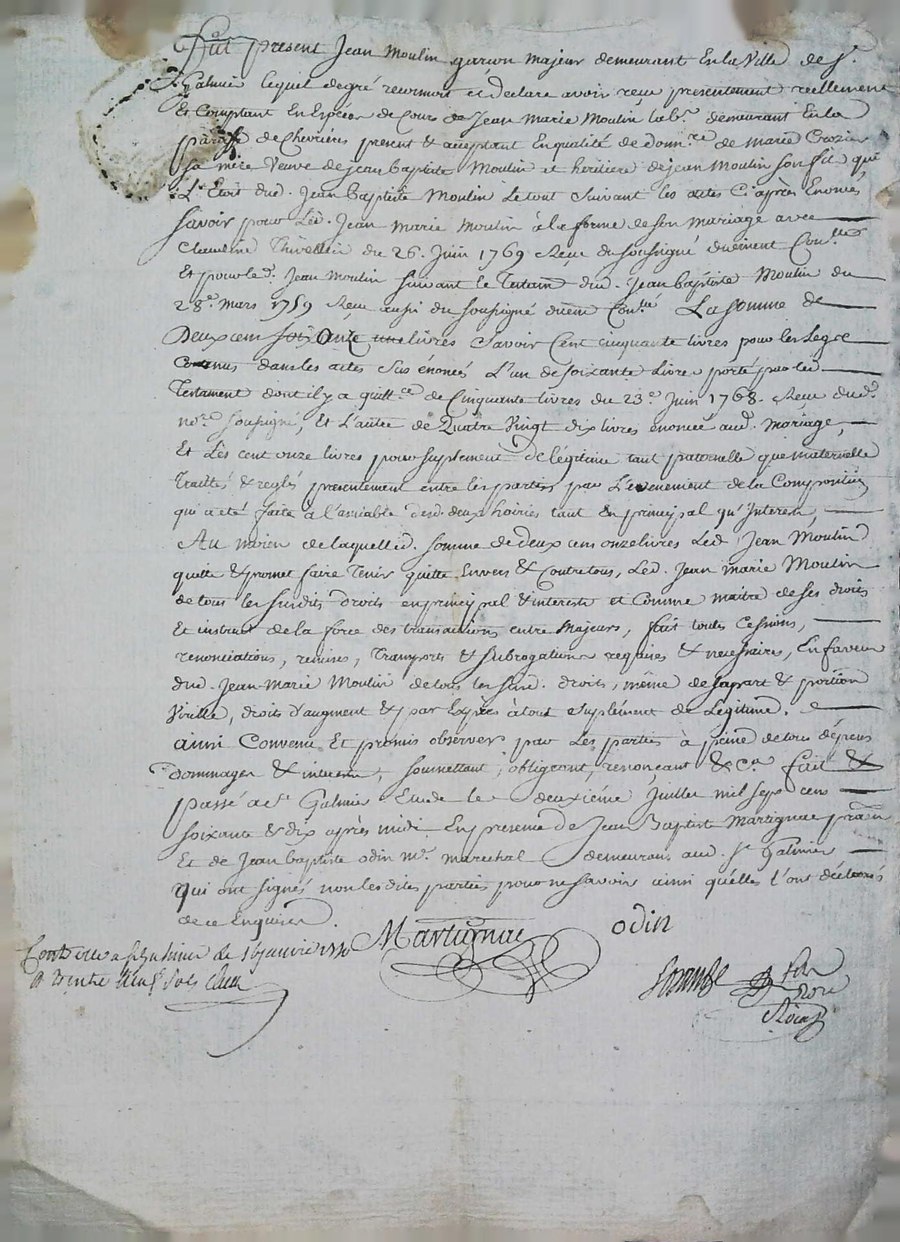 Fut present Jean Moulin garcon Majeur demeurant En la Ville de St.
Galmier lequel degré reconnoit et Declare avoir reçu presentement reellement
Et Comptant En Espéces de Cours de Jean Marie Moulin labr. demeurant En la
parsse de Chevrières present & acceptant En qualité de donnre. de marie Crozier
sa mère Veuve de jean baptiste Moulin et héritière de jean Moulin son fils qui
L'Etoit dud. Jean baptiste Moulin Le tout Suivant les actes Cy après Enoncés
Savoir pour Led. Jean Marie Moulin à la forme de son Mariage avec
Claudine Thivellier du 26. Juin 1769 Reçu du soussigné duëment Conllé
Et pour led. Jean Moulin suivant le Testamt. dud. Jean baptiste Moulin du
28e. Mars 1759 Reçu aussi du soussigné duem Conllé La somme de
Deux cens Onze livres Savoir Cent cinquante livres pour les Legs
Contenus dans les actes Sus énoncés L'un de soixante Livres porté par led.
Testament dont il y a quittce. de Cinquante livres du 23e. Juin 1768. Reçu dud.
nore. soussigné, Et L'autre de Quatre Vingt dix livres enoncée aud. Mariage,
Et Les cent onze livres pour Suplement de légitime tant paternelle que maternelle
Traittés & reglés presentement entre les parties par L'evenement de la Composition
qui a été faite à l'amiable desd. deux hoiries tant En principal qu'Interest,
Au moien de laquelle d. Somme de deux cens onze livres Led. Jean Moulin
quitte & promet faire Tenir quitte Envers & Contre tous, Led. Jean Marie Moulin
de tous les susdits droits en principal & interests et Comme maitre de ses droits
Et instruit de la force des transactions entre Majeurs, fait toutes Cessions,
renonciations, remises, Transports & subrogations requises & necessaires, En faveur
dud. Jean Marie Moulin de tous les susd. droits, même de sa part & portion
Virille, droits d'augment & par Exprès à tout suplément de Légitime.
ainsi Convenu Et promis observer par Les parties à peine de tous dépens
Dommages & interests, soumettant, obligeant, renonçant & Ca. fait &
passé a St. Galmier Etude le deuxiéme Juillet mil sept cens
soixante & dix après midi En presence de Jean Baptiste Martignac praën
Et de Jean baptiste odin me. marechal demeurans aud. St Galmier
Qui ont signés non les dites parties pour ne savoir ainsi qu'elles l'ont déclarées
de ce Enquises
Martignac odin